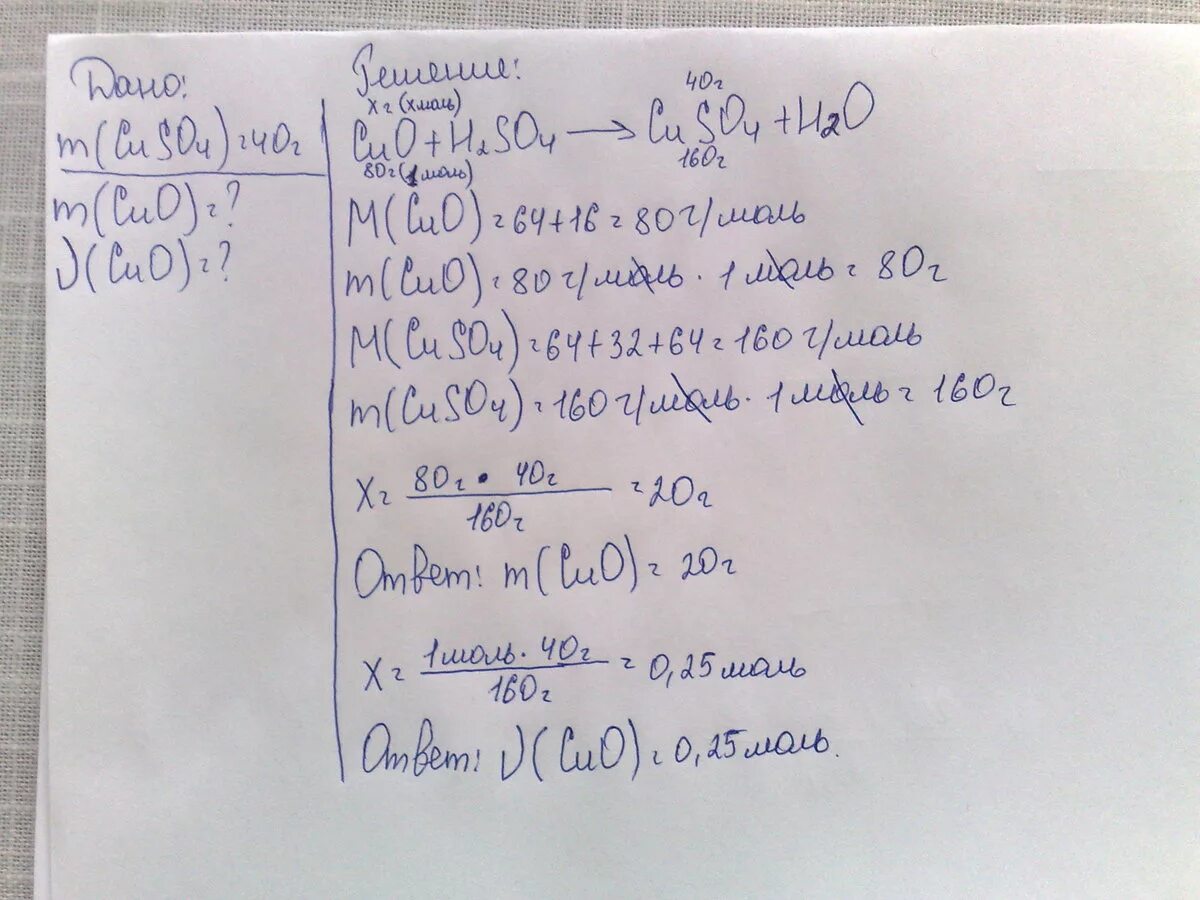 Дано:
m(CuSO4)=40г
m(CuO)=?
ν(CuO)=?
Решение:
x г (x моль) 40г
CuO + H2SO4 → CuSO4 + H2O
80г (1 моль) 160г
M(CuO)=64+16=80 г/моль
m(CuO)=80 г/моль · 1 моль = 80г
M(CuSO4)=64+32+64=160 г/моль
m(CuSO4)=160 г/моль · 1 моль = 160г
x = 80г · 40г / 160г = 20г
Ответ: m(CuO)=20г
x = 1 моль · 40г / 160г = 0,25 моль
Ответ: ν(CuO)=0,25 моль.